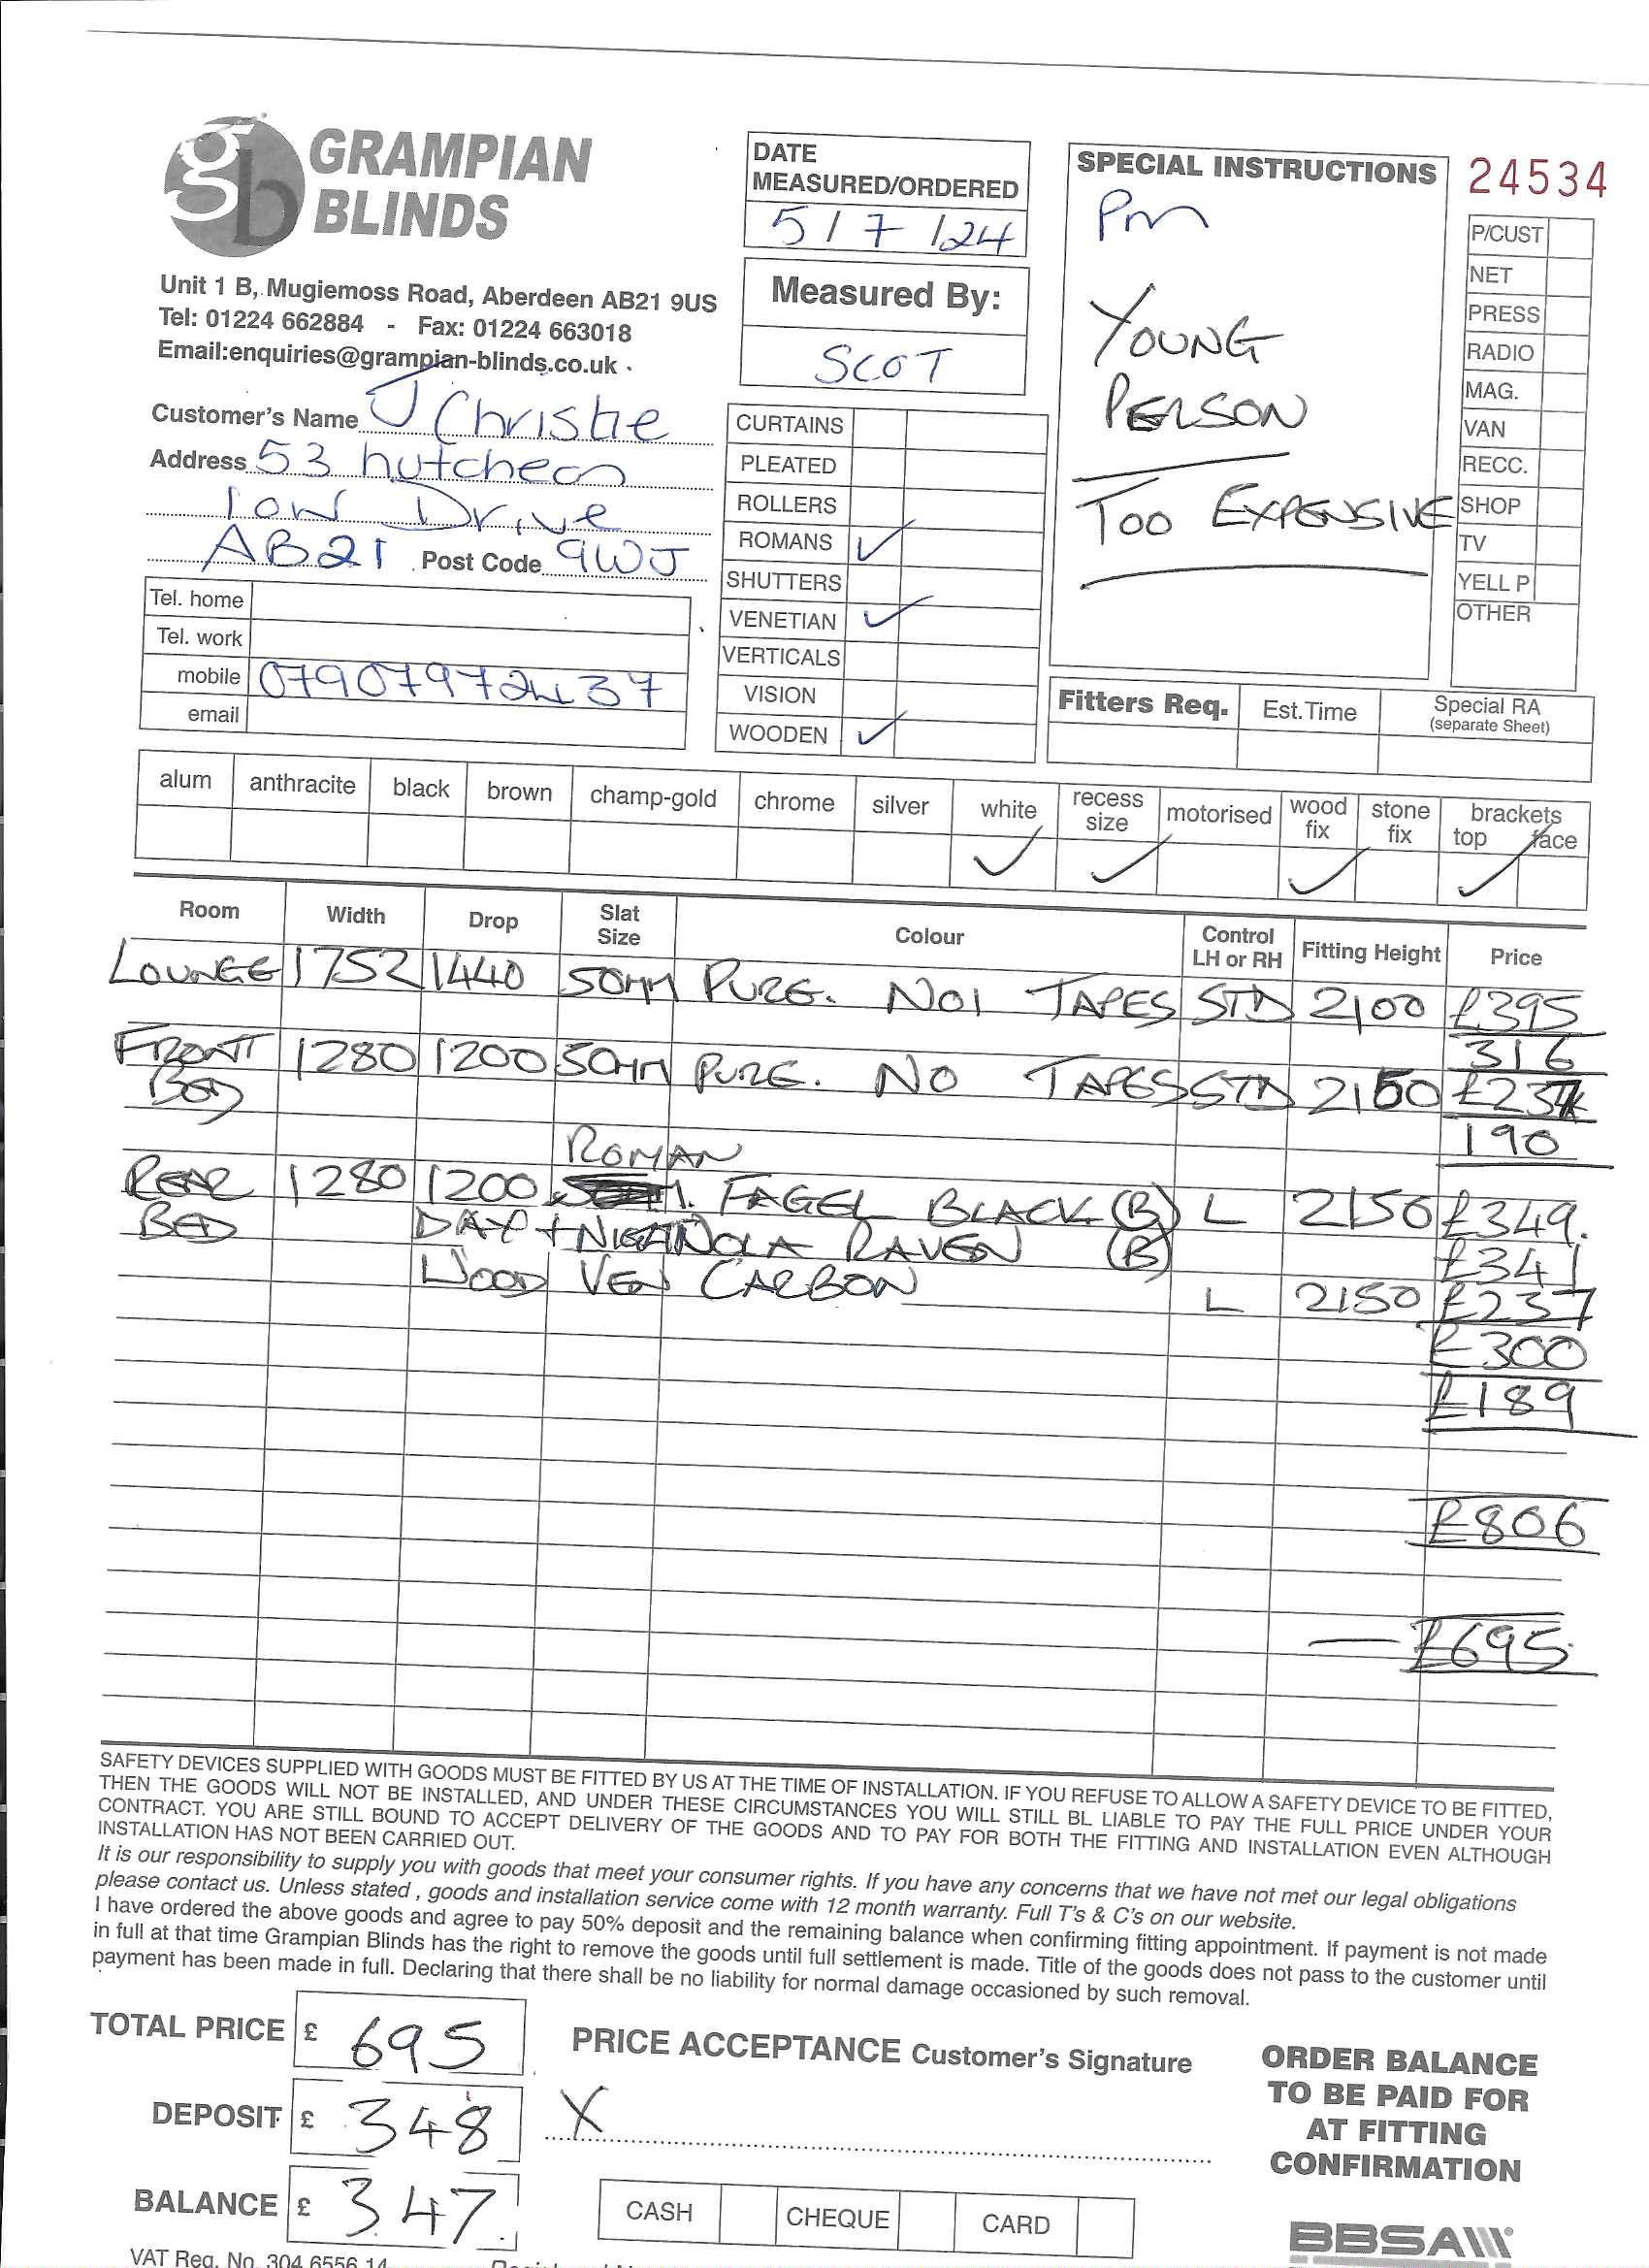 GRAMPIAN
BLINDS
Unit 1 B, Mugiemoss Road, Aberdeen AB21 9US
Tel: 01224 662884 - Fax: 01224 663018
Email:enquiries@grampian-blinds.co.uk
Customer's Name J Christie
Address 53 hutcheon
low Drive
AB21 Post Code 9WJ
Tel. home
Tel. work
mobile
email
DATE
MEASURED/ORDERED
5 / 7 / 24
Measured By:
SCOT
CURTAINS
PLEATED
ROLLERS
ROMANS ✓
SHUTTERS
VENETIAN ✓
VERTICALS
VISION
WOODEN ✓
SPECIAL INSTRUCTIONS
Pm
YOUNG
PERSON
TOO EXPENSIVE
24534
P/CUST
NET
PRESS
RADIO
MAG.
VAN
RECC.
SHOP
TV
YELL P
OTHER
Fitters Req. Est.Time Special RA
(separate Sheet)
alum anthracite black brown champ-gold chrome silver white recess size motorised wood fix stone fix brackets top face
✓ ✓ ✓ ✓
Room Width Drop Slat Size Colour Control LH or RH Fitting Height Price
LOUNGE 1752 1440 50MM PURE. NO1 TAPES STD 2100 £395
316
FRONT BED 1280 1200 50MM PURE. NO TAPES STD 2150 £237
190
ROMAN
REAR BED 1280 1200 FAGEL BLACK (B) L 2150 £349.
DAY + NIGHT NOLA RAVEN (B) £341
WOOD VEN CARBON L 2150 £237
£300
£189
£806
£695
SAFETY DEVICES SUPPLIED WITH GOODS MUST BE FITTED BY US AT THE TIME OF INSTALLATION. IF YOU REFUSE TO ALLOW A SAFETY DEVICE TO BE FITTED,
THEN THE GOODS WILL NOT BE INSTALLED, AND UNDER THESE CIRCUMSTANCES YOU WILL STILL BL LIABLE TO PAY THE FULL PRICE UNDER YOUR
CONTRACT. YOU ARE STILL BOUND TO ACCEPT DELIVERY OF THE GOODS AND TO PAY FOR BOTH THE FITTING AND INSTALLATION EVEN ALTHOUGH
INSTALLATION HAS NOT BEEN CARRIED OUT.
It is our responsibility to supply you with goods that meet your consumer rights. If you have any concerns that we have not met our legal obligations
please contact us. Unless stated , goods and installation service come with 12 month warranty. Full T's & C's on our website.
I have ordered the above goods and agree to pay 50% deposit and the remaining balance when confirming fitting appointment. If payment is not made
in full at that time Grampian Blinds has the right to remove the goods until full settlement is made. Title of the goods does not pass to the customer until
payment has been made in full. Declaring that there shall be no liability for normal damage occasioned by such removal.
TOTAL PRICE £ 695
DEPOSIT £ 348
BALANCE £ 347.
PRICE ACCEPTANCE Customer's Signature
X
CASH CHEQUE CARD
ORDER BALANCE
TO BE PAID FOR
AT FITTING
CONFIRMATION
BBSA
VAT Reg. No. 304 6556 14